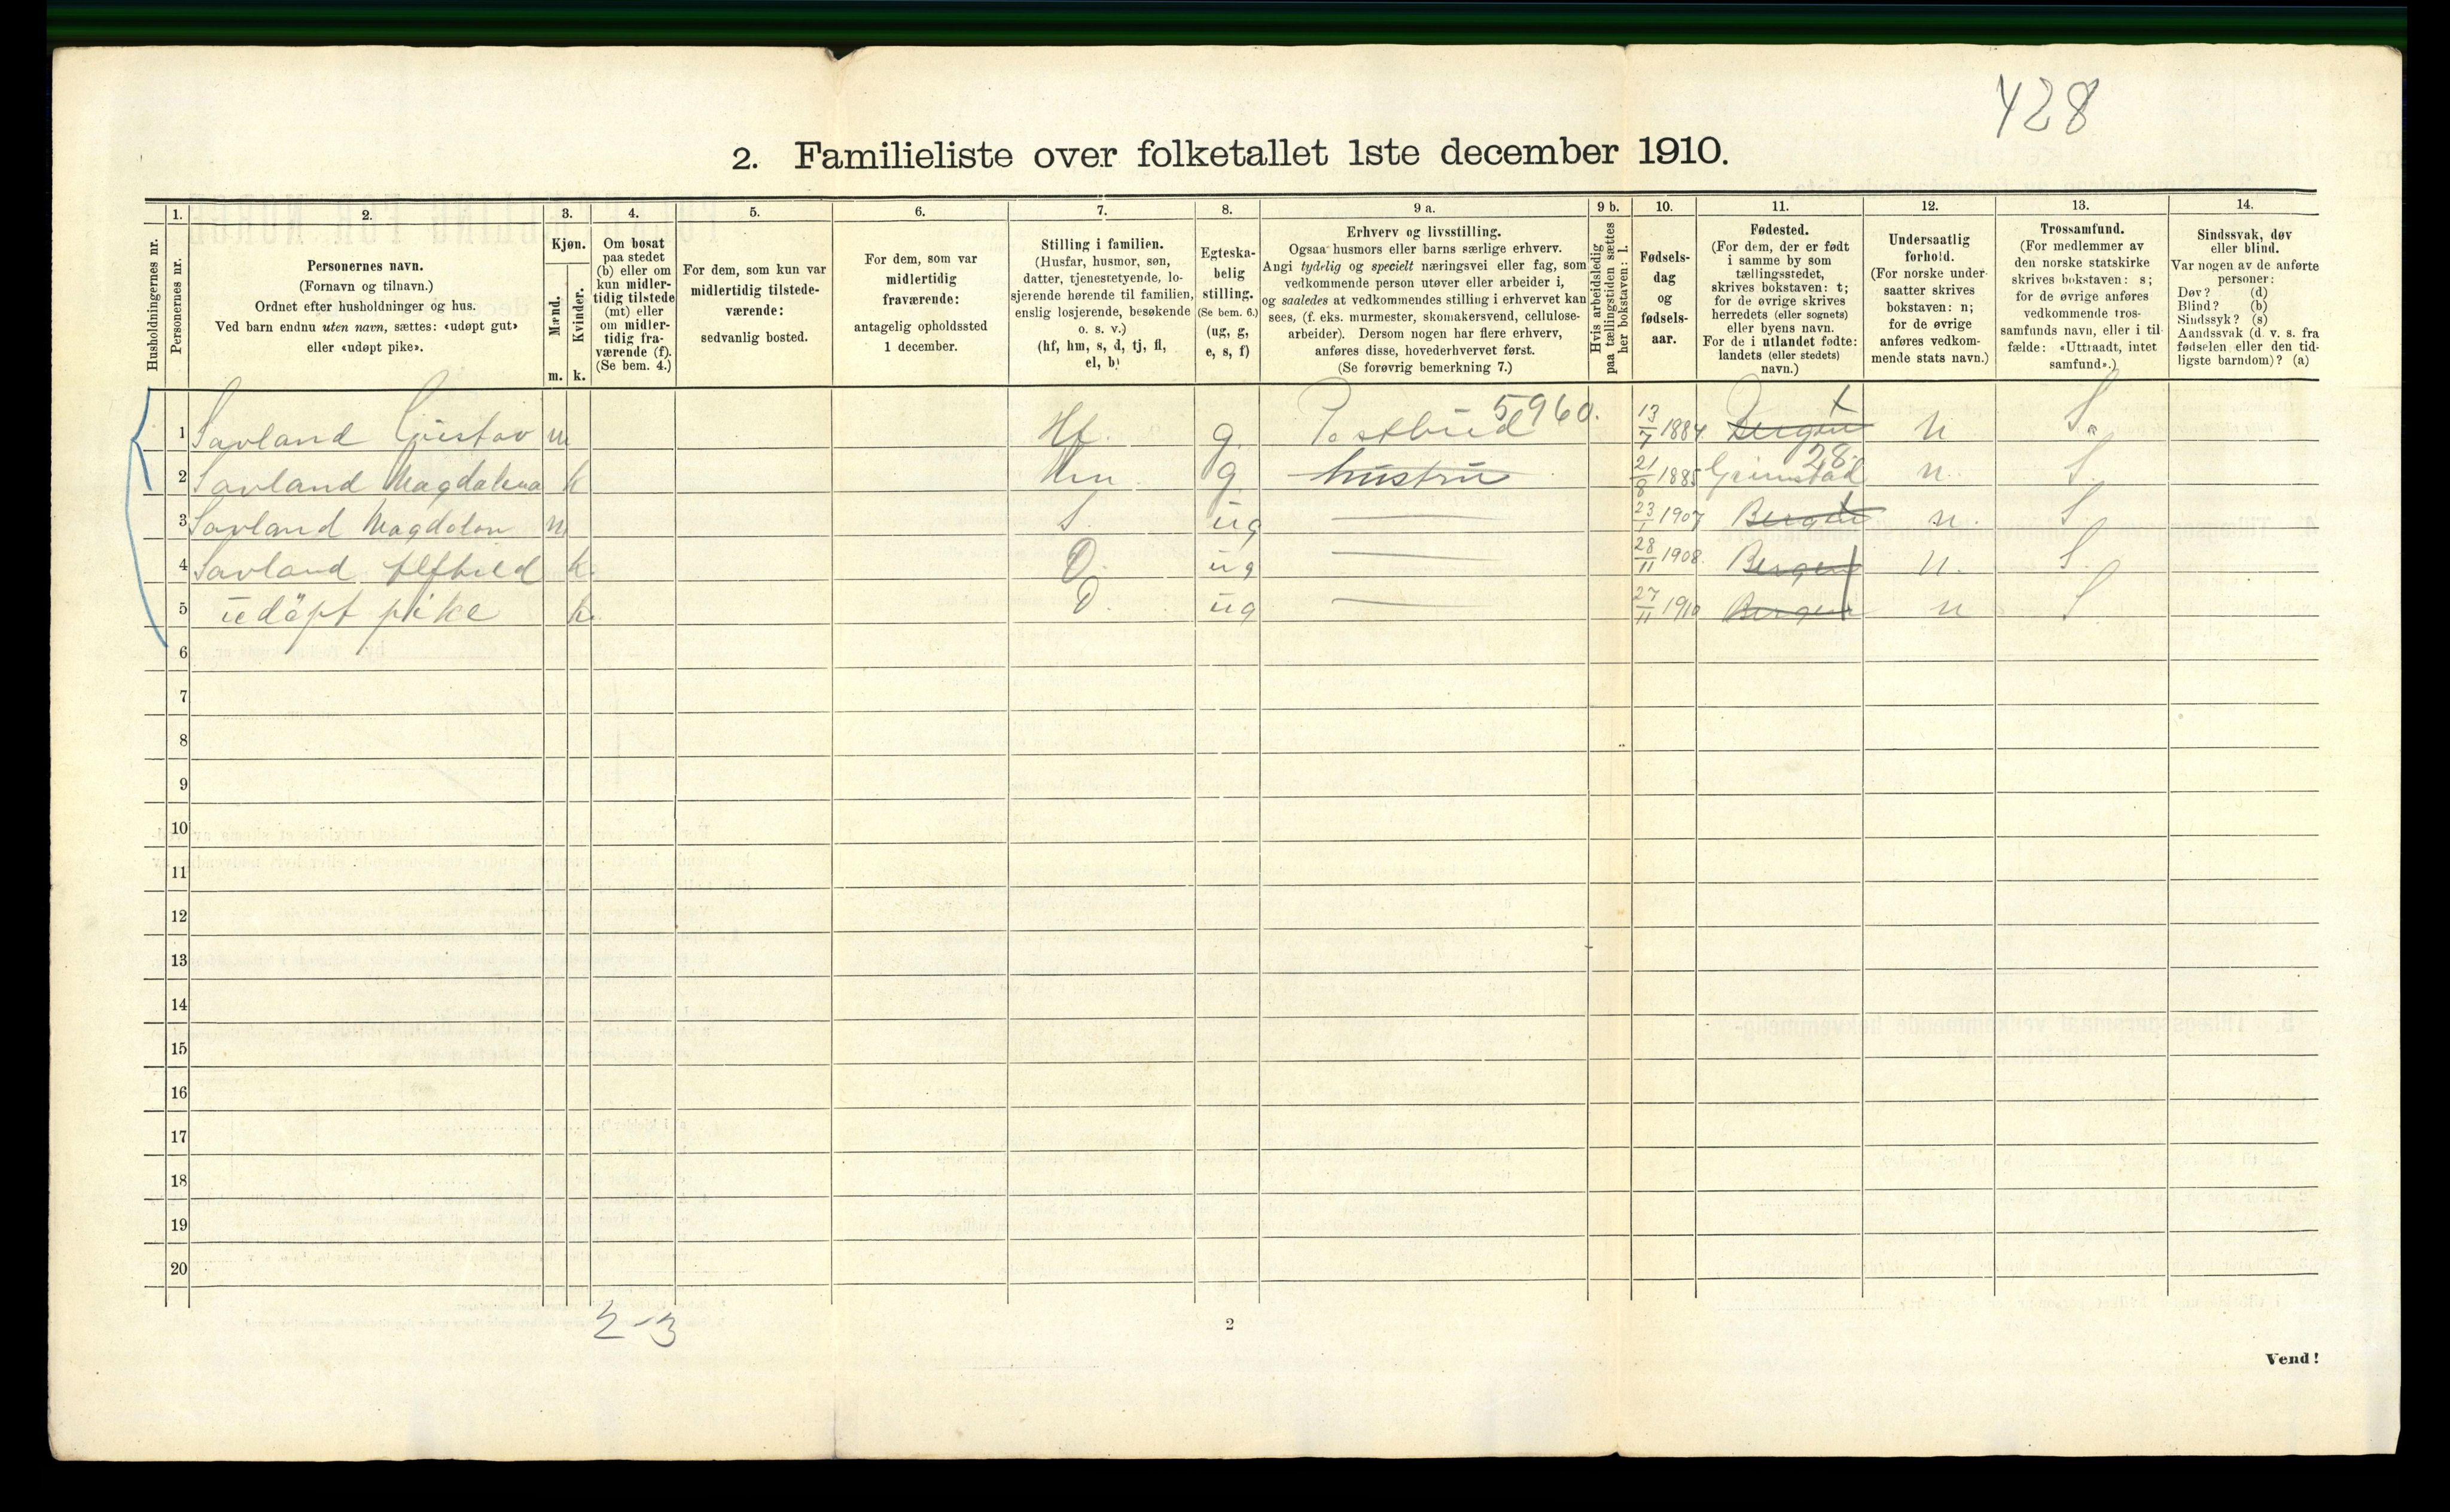 428
2. Familieliste over folketallet 1ste december 1910.
Husholdningernes nr.
1.
Personernes nr.
2.
Personernes navn.
(Fornavn og tilnavn.)
Ordnet efter husholdninger og hus.
Ved barn endnu uten navn, sættes: «udøpt gut»
eller «udøpt pike».
3.
Kjøn.
Mænd.
Kvinder.
m. k.
4.
Om bosat
paa stedet
(b) eller om
kun midler-
tidig tilstede
(mt) eller
om midler-
tidig fra-
værende (f).
(Se bem. 4.)
5.
For dem, som kun var
midlertidig tilstede-
værende:
sedvanlig bosted.
6.
For dem, som var
midlertidig
fraværende:
antagelig opholdssted
1 december.
7.
Stilling i familien.
(Husfar, husmor, søn,
datter, tjenestetyende, lo-
sjerende hørende til familien,
enslig losjerende, besøkende
o. s. v.)
(hf, hm, s, d, tj, fl,
el, b)
8.
Egteska-
belig
stilling.
(Se bem. 6.)
(ug, g,
e, s, f)
9 a.
Erhverv og livsstilling.
Ogsaa husmors eller barns særlige erhverv.
Angi tydelig og specielt næringsvei eller fag, som
vedkommende person utøver eller arbeider i,
og saaledes at vedkommendes stilling i erhvervet kan
sees, (f. eks. murmester, skomakersvend, cellulose-
arbeider). Dersom nogen har flere erhverv,
anføres disse, hovederhvervet først.
(Se forøvrig bemerkning 7.)
9 b.
Hvis arbeidsledig
paa tællingstiden sættes
her bokstaven: l.
10.
Fødsels-
dag
og
fødsels-
aar.
11.
Fødested.
(For dem, der er født
i samme by som
tællingsstedet,
skrives bokstaven: t;
for de øvrige skrives
herredets (eller sognets)
eller byens navn.
For de i utlandet fødte:
landets (eller stedets)
navn.)
12.
Undersaatlig
forhold.
(For norske under-
saatter skrives
bokstaven: n;
for de øvrige
anføres vedkom-
mende stats navn.)
13.
Trossamfund.
(For medlemmer av
den norske statskirke
skrives bokstaven: s;
for de øvrige anføres
vedkommende tros-
samfunds navn, eller i til-
fælde: «Uttraadt, intet
samfund».)
14.
Sindssvak, døv
eller blind.
Var nogen av de anførte
personer:
Døv? (d)
Blind? (b)
Sindssyk? (s)
Aandssvak (d. v. s. fra
fødselen eller den tid-
ligste barndom)? (a)
1 Savland Gustav m Hf. g. Postbud 5960. 13/7 1884 Bergen t n S.
2 Savland Magdalena k Hm g hustru 21/8 1885 Grimstad 28. n. S.
3 Savland Magdalon m S. ug 23/1 1907 Bergen t n. S.
4 Savland Alfhild k. D. ug 28/11 1908. Bergen t n. S.
5 udöpt pike k. D. ug 27/11 1910 Bergen t n S
6
7
8
9
10
11
12
13
14
15
16
17
18
19
20
2-3
2
Vend!